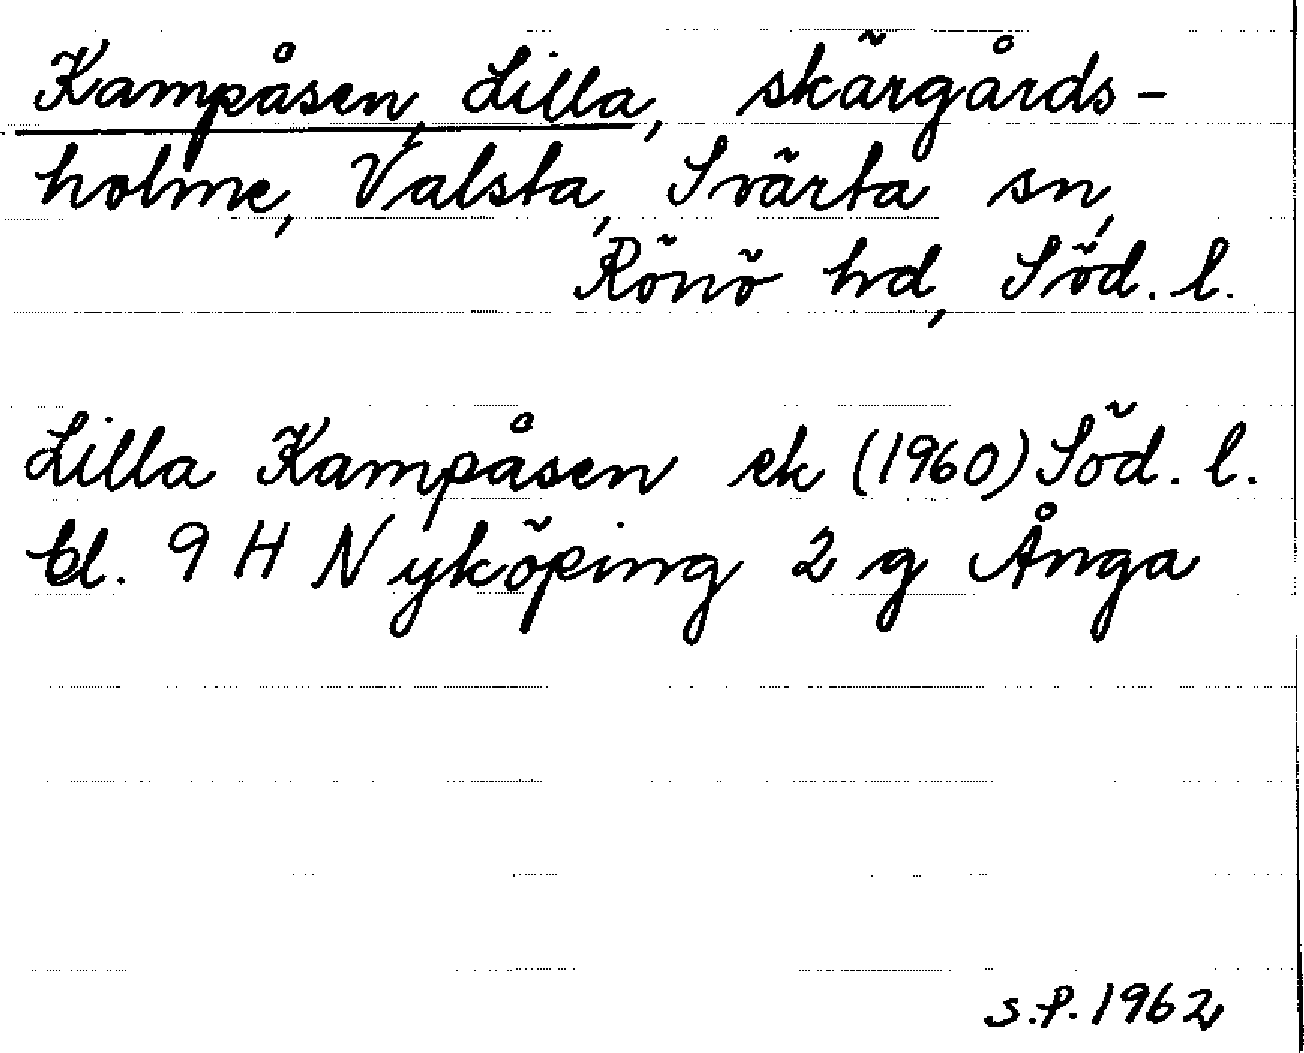 Kampåsen, Lilla, skärgårds-
holme, Valsta, Svärta sn,
Rönö hd, Söd. l.
Lilla Kampåsen ek (1960) Söd. l.
bl. 9 H Nyköping 2 g Ånga
S.P. 1962